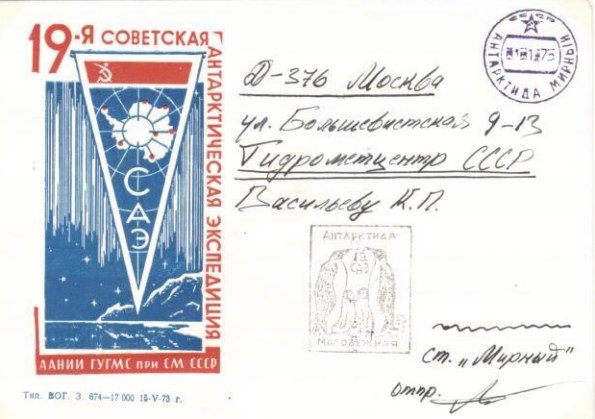 19-Я СОВЕТСКАЯ
АНТАРКТИЧЕСКАЯ ЭКСПЕДИЦИЯ
САЭ
ААНИИ ГУГМС ПРИ СМ СССР
Тип. ВОГ. З. 674—17 000 15-V-73 г.
АНТАРКТИДА МИРНЫЙ
Д-376 Москва
ул. Большевистская 9-13
Гидрометцентр СССР
Васильеву К.П.
АНТАРКТИДА
19
САЭ
МОЛОДЕЖНАЯ
ст. „Мирный"
отпр.